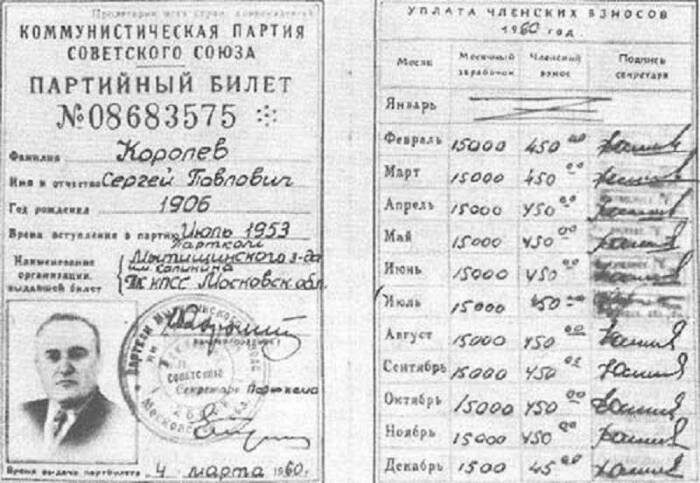 Пролетарии всех стран, соединяйтесь!
КОММУНИСТИЧЕСКАЯ ПАРТИЯ
СОВЕТСКОГО СОЮЗА
ПАРТИЙНЫЙ БИЛЕТ
№08683575
Фамилия Королев
Имя и отчество Сергей Павлович
Год рождения 1906
Время вступления в партию Июль 1953
Наименование организации, выдавшей билет
Партком
Мытищинского з-да
им. Калинина
КПСС Московск. обл.
Секретарь Парткома
Время выдачи партбилета 4 марта 1960 г.
УПЛАТА ЧЛЕНСКИХ ВЗНОСОВ
1960 ГОД
Месяц Месячный заработок Членский взнос Подпись секретаря
Январь
Февраль 15000 450 00
Март 15000 450 00
Апрель 15000 450 00
Май 15000 450 00
Июнь 15000 450 00
Июль 15000 450 00
Август 15000 450 00
Сентябрь 15000 450 00
Октябрь 15000 450 00
Ноябрь 15000 450 00
Декабрь 1500 45 00